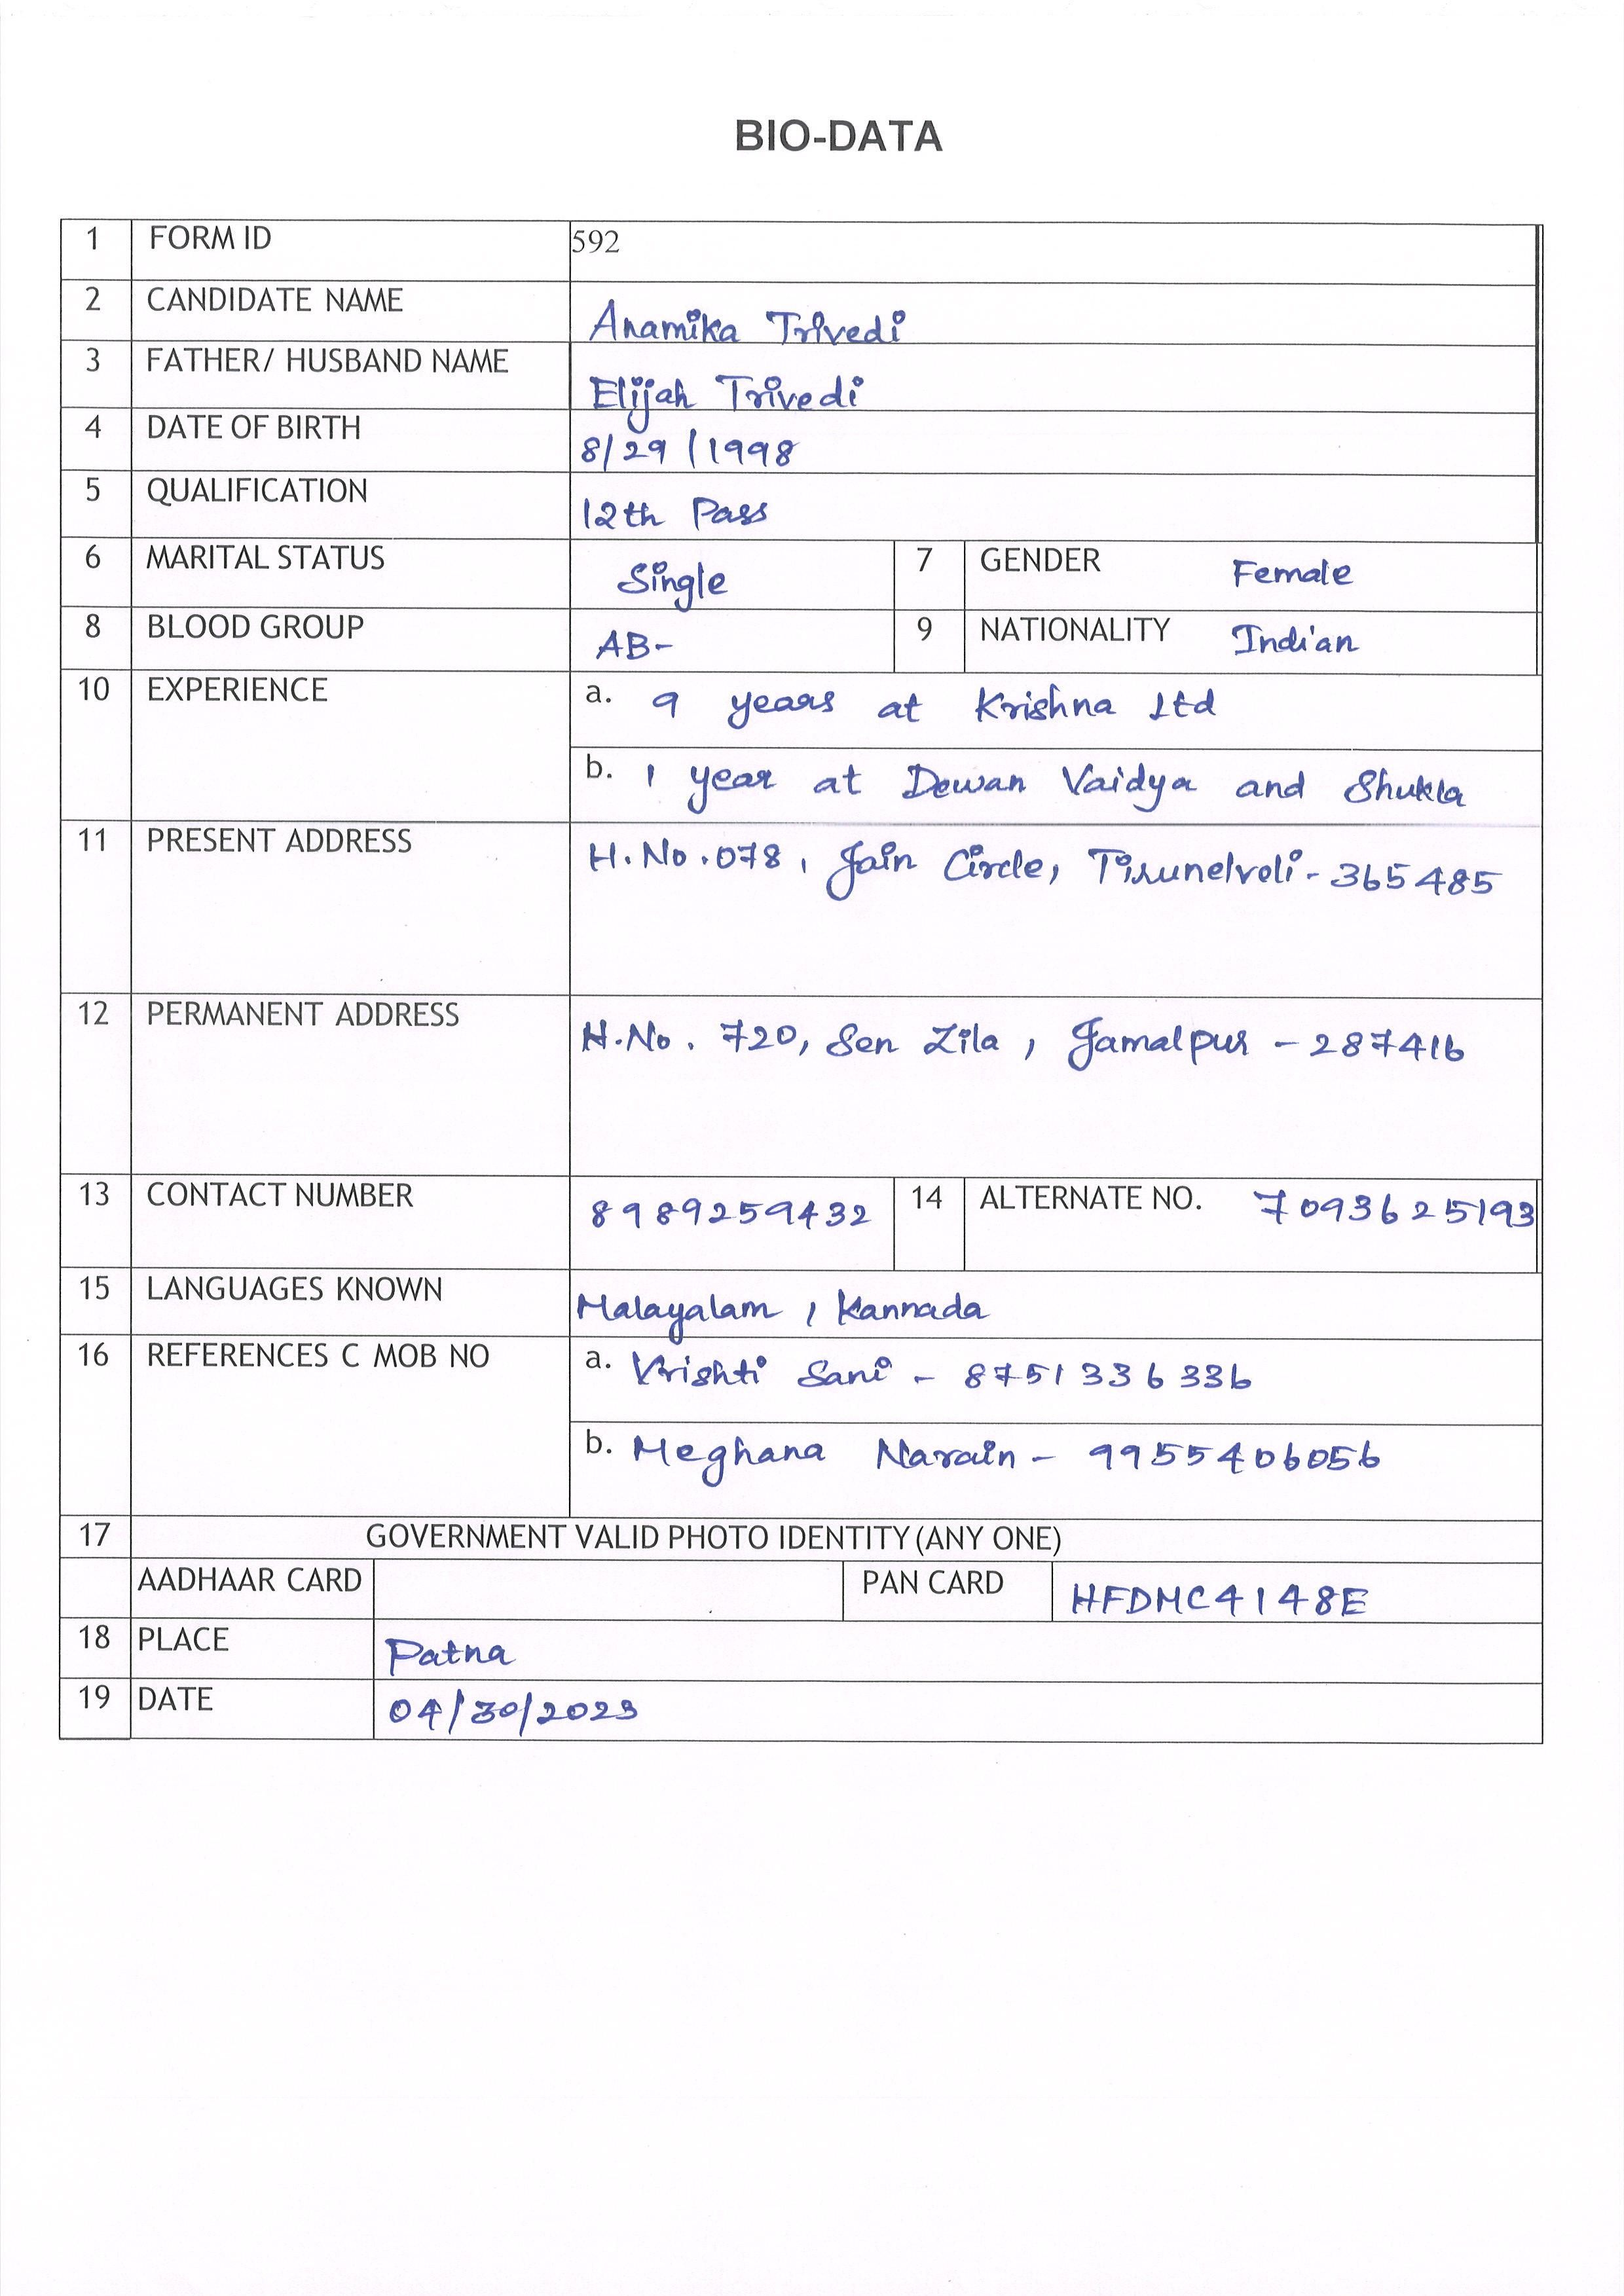 BIO-DATA
1 FORM ID 592
2 CANDIDATE NAME Anamika Trivedi
3 FATHER/ HUSBAND NAME Elijah Trivedi
4 DATE OF BIRTH 8/29/1998
5 QUALIFICATION 12th Pass
6 MARITAL STATUS Single 7 GENDER Female
8 BLOOD GROUP AB- 9 NATIONALITY Indian
10 EXPERIENCE a. 9 years at Krishna Ltd
b. 1 year at Dewan Vaidya and Shukla
11 PRESENT ADDRESS H.No.078, Jain Circle, Tirunelveli-365485
12 PERMANENT ADDRESS H.No. 720, Sen Zila, Jamalpur - 287416
13 CONTACT NUMBER 8989259432 14 ALTERNATE NO. 7093625193
15 LANGUAGES KNOWN Malayalam, Kannada
16 REFERENCES C MOB NO a. Vrishti Sani - 8751336336
b. Meghana Narain - 9955406056
17 GOVERNMENT VALID PHOTO IDENTITY (ANY ONE)
AADHAAR CARD PAN CARD HFDMC4148E
18 PLACE Patna
19 DATE 04/30/2023